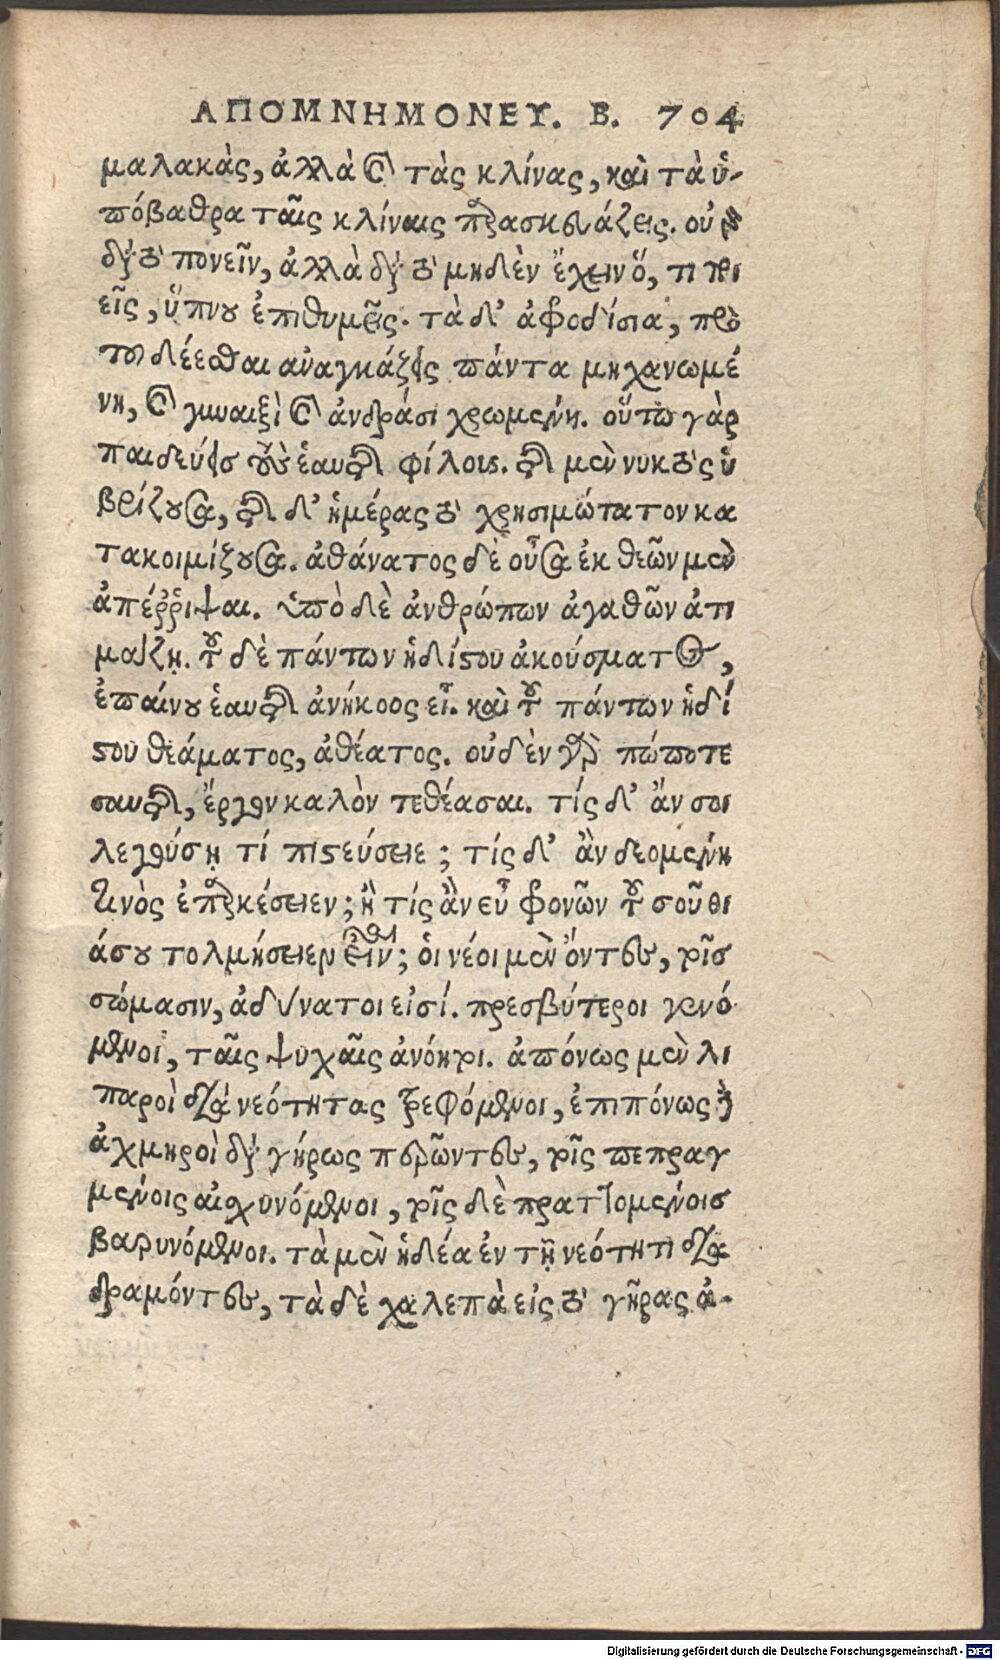 ΑΠΟΜΝΗΜΟΝΕΥ. Β. 704
μαλακὰς, ἀλλὰ καὶ τὰς κλίνας, καὶ τὰ ὑ-
πόβαθρα ταῖς κλίναις παρασκευάζεις. οὐ γὰρ
διὰ τὸ πονεῖν, ἀλλὰ διὰ τὸ μηδὲν ἔχειν ὅ, τι ποι
εῖς, ὕπνου ἐπιθυμεῖς. τὰ δ' ἀφροδίσια, πρὸ
τοῦ δέεσθαι ἀναγκάζεις πάντα μηχανωμέ
νη, καὶ γυναιξὶ καὶ ἀνδράσι χρωμένη. οὕτω γὰρ
παιδεύεις τοὺς ἑαυτῆς φίλους. τῆς μὲν νυκτὸς ὑ
βρίζουσα, τῆς δ' ἡμέρας τὸ χρησιμώτατον κα
τακοιμίζουσα. ἀθάνατος δὲ οὖσα ἐκ θεῶν μὲν
ἀπέῤῥιψαι. ὑπὸ δὲ ἀνθρώπων ἀγαθῶν ἀτι
μάζῃ. τοῦ δὲ πάντων ἡδίστου ἀκούσματος,
ἐπαίνου ἑαυτῆς ἀνήκοος εἶ. καὶ τοῦ πάντων ἡδί
στου θεάματος, ἀθέατος. οὐδὲν γὰρ πώποτε
σαυτῆς, ἔργον καλὸν τεθέασαι. τίς δ' ἄν σοι
λεγούσῃ τί πιστεύσειε; τίς δ' ἂν δεομένη
τινὸς ἐπαρκέσειεν; ἢ τίς ἂν εὖ φρονῶν τοῦ σοῦ θι
άσου τολμήσειεν εἶναι; οἱ νέοι μὲν ὄντες, τοῖς
σώμασιν, ἀδύνατοι εἰσί. πρεσβύτεροι γενό
μενοι, ταῖς ψυχαῖς ἀνόητοι. ἀπόνως μὲν λι
παροὶ διὰ νεότητας τρεφόμενοι, ἐπιπόνως δὲ
ἀχμηροὶ διὰ γήρως περῶντες, τοῖς πεπραγ
μένοις αἰσχυνόμενοι, τοῖς δὲ πραττομένοις
βαρυνόμενοι. τὰ μὲν ἡδέα ἐν τῇ νεότητι δια
δραμόντες, τὰ δὲ χαλεπὰ εἰς τὸ γῆρας ἀ-
Digitalisierung gefördert durch die Deutsche Forschungsgemeinschaft - DFG